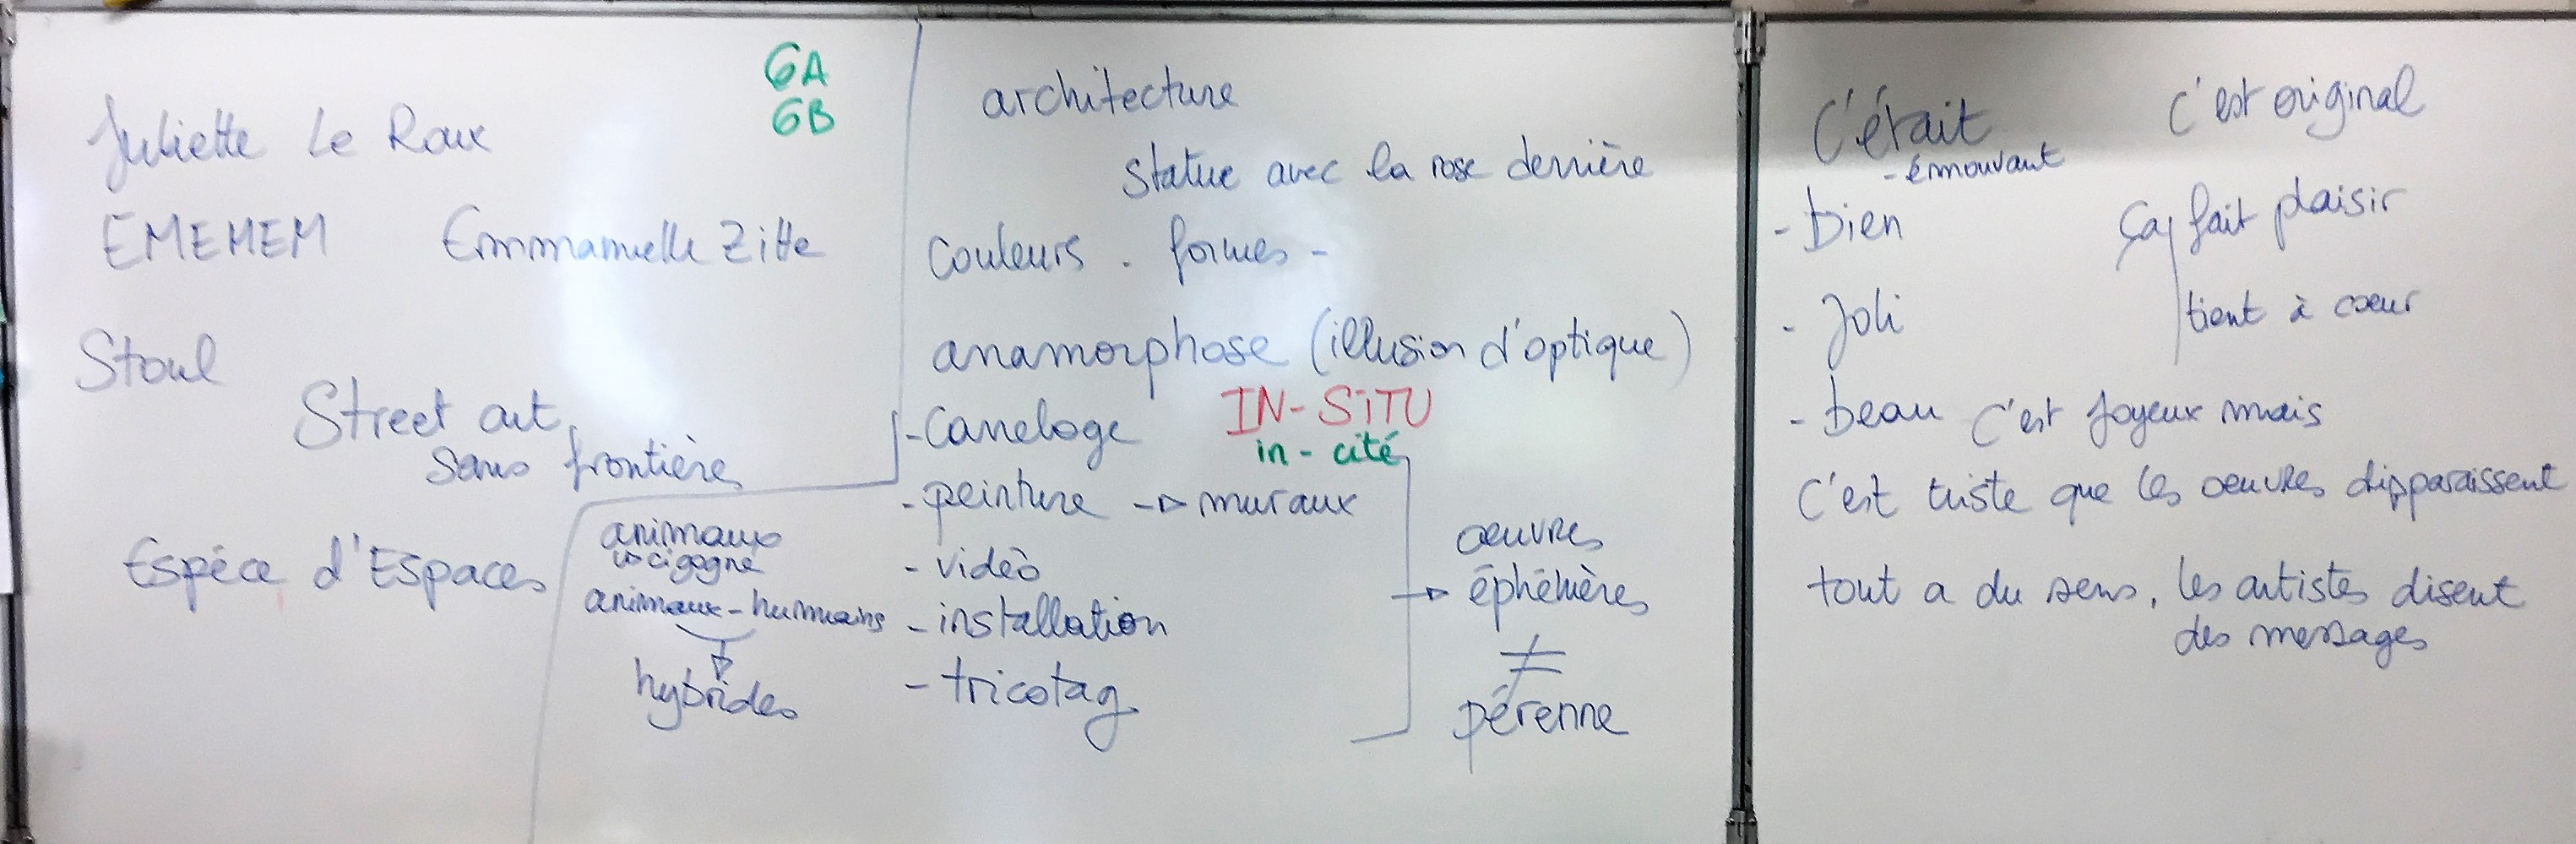 6A
6B
Juliette Le Roux
EMEMEM Emmanuelle Zitte
Stoul
Street art
sans frontière
Espèce d'Espaces
animaux
↳ cigogne
animaux - humains
hybrides
architecture
statue avec la rose derrière
couleurs . formes -
anamorphose (illusion d'optique)
- Carreloge
IN-SiTU
in-cité
- peinture → muraux
- vidéo
- installation
- tricotag
→ œuvres
éphémères
≠
pérenne
C'était
- émouvant
- bien
- Joli
- beau
c'est original
ça fait plaisir
tient à cœur
c'est joyeux mais
c'est triste que les oeuvres disparaissent
tout a du sens, les artistes disent
des messages